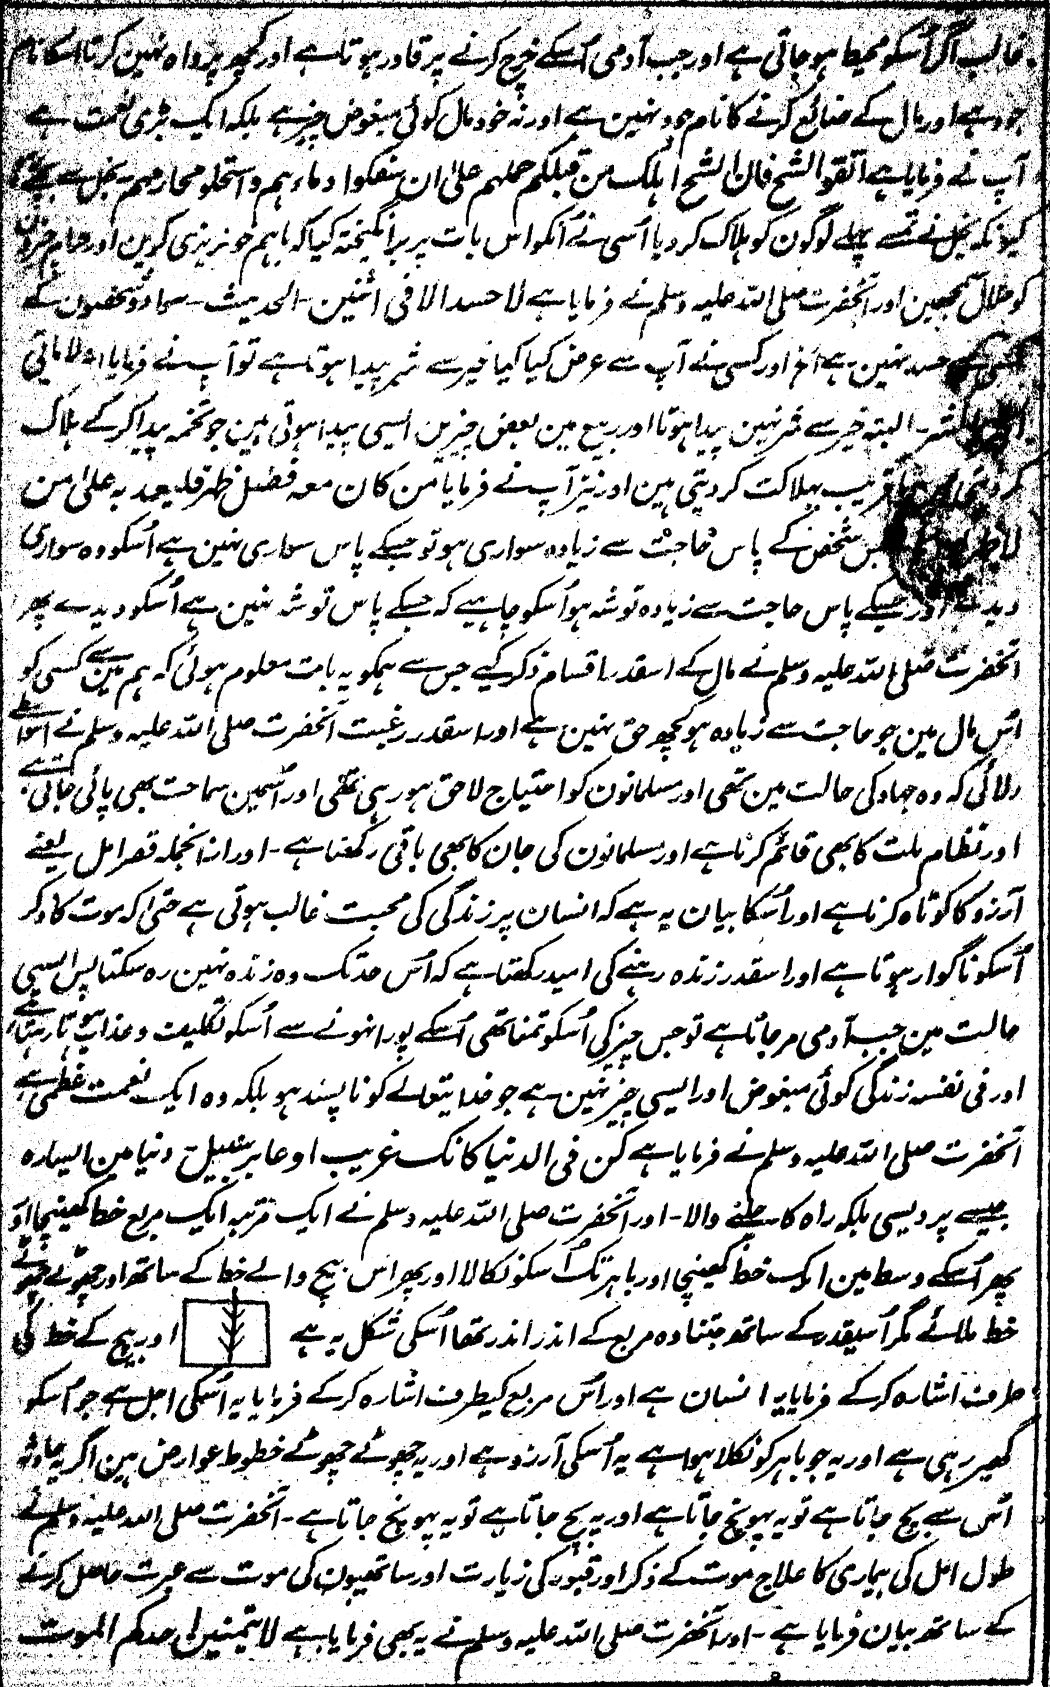 غالب آکر اُسکو محیط ہو جاتی ہے اور جب آدمی اُسکے خرچ کرنے پر قادر ہوتا ہے اور کچھ پرواہ نہین کرتا اسکا نام
جود ہے اور مال کے ضائع کرنے کا نام جود نہین ہے اور نہ خود مال کوئی مبغوض چیز ہے بلکہ ایک بڑی نعمت ہے
آپ نے فرمایا ہے اتقوا الشح فان الشح اہلک من قبلکم حملہم علیٰ ان سفکوا دماءہم واستحلو محارمہم بخل سے بچو
کیونکہ بخل نے تمسے پہلے لوگون کو ہلاک کر دیا اُسی نے اُنکو اس بات پر برانگیختہ کیا کہ باہم خونریزی کرین اور حرام چیزون
کو حلال سمجھین اور آنحضرت صلی اللہ علیہ وسلم نے فرمایا ہے لا حسد الا فی اثنین ۔ الحدیث ۔ سواء دو شخصون کے
کسی سے حسد نہین ہے الخ اور کسی نے آپ سے عرض کیا کیا خیر سے شر پیدا ہوتا ہے تو آپ نے فرمایا انہ لا یاتی
الشر ۔ البتہ خیر سے شر نہین پیدا ہوتا اور ربیع مین بعض چیزین ایسی پیدا ہوتی ہین جو تخمہ پیدا کرکے ہلاک
قریب بہلاکت کر دیتی ہین اور نیز آپ نے فرمایا من کان معہ فضل ظہر فلیعد بہ علیٰ من
لا ظہر جس شخص کے پاس حاجت سے زیادہ سواری ہو تو جسکے پاس سواری نہین ہے اُسکو وہ سواری
دیدے اور جسکے پاس حاجت سے زیادہ توشہ ہو اُسکو چاہیے کہ جسکے پاس توشہ نہین ہے اُسکو دیدے پھر
آنحضرت صلی اللہ علیہ وسلم نے مال کے اسقدر اقسام ذکر کیے جس سے ہمکو یہ بات معلوم ہوئی کہ ہم مین سے کسی کو
اُس مال مین جو حاجت سے زیادہ ہو کچھ حق نہین ہے اور اسقدر رغبت آنحضرت صلی اللہ علیہ وسلم نے اسواسطے
دلائی کہ وہ جہاد کی حالت مین تھی اور مسلمانون کو احتیاج لاحق ہو رہی تھی اور اُسمین سماحت بھی پائی جاتی ہے
اور نظام ملت کا بھی قائم کرنا ہے اور مسلمانون کی جان کا بھی باقی رکھنا ہے ۔ اور از انجملہ قصر امل یعنے
آرزو کا کوتاہ کرنا ہے اور اُسکا بیان یہ ہے کہ انسان پر زندگی کی محبت غالب ہوتی ہے حتیٰ کہ موت کا ذکر
اُسکو ناگوار ہوتا ہے اور اسقدر زندہ رہنے کی امید رکھتا ہے کہ اُس حد تک وہ زندہ نہین رہ سکتا پس ایسی
حالت مین جب آدمی مر جاتا ہے تو جس چیز کی اُسکو تمنا تھی اُسکے پورا نہونے سے اُسکو تکلیف و عذاب ہوتا رہتا ہے
اور فی نفسہ زندگی کوئی مبغوض اور ایسی چیز نہین ہے جو خدایتعالے کو ناپسند ہو بلکہ وہ ایک نعمت عظمیٰ ہے
آنحضرت صلی اللہ علیہ وسلم نے فرمایا ہے کن فی الدنیا کانک غریب او عابر سبیل ۔ دنیا مین ایسا رہ
جیسے پردیسی بلکہ راہ کا چلنے والا ۔ اور آنحضرت صلی اللہ علیہ وسلم نے ایک مرتبہ ایک مربع خط کھینچا اور
پھر اُسکے وسط مین ایک خط کھینچا اور باہر تک اُسکو نکالا اور پھر اس بیچ والے خط کے ساتھ اور چھوٹے چھوٹے
خط ملائے مگر اُسیقدر کے ساتھ جتنا وہ مربع کے اندر اندر تھا اُسکی شکل یہ ہے اور بیچ کے خط کی
طرف اشارہ کرکے فرمایا یہ انسان ہے اور اُس مربع کیطرف اشارہ کرکے فرمایا یہ اُسکی اجل ہے جو اُسکو
گھیر رہی ہے اور یہ جو باہر کو نکلا ہوا ہے یہ اُسکی آرزو ہے اور یہ چھوٹے چھوٹے خطوط عوارض ہین اگر یہ حادثہ
اُس سے بچ جاتا ہے تو یہ پہونچ جاتا ہے اور یہ بچ جاتا ہے تو یہ پہونچ جاتا ہے ۔ آنحضرت صلی اللہ علیہ وسلم نے
طول امل کی بیماری کا علاج موت کے ذکر اور قبور کی زیارت اور ساتھیون کی موت سے عبرت حاصل کرنے
کے ساتھ بیان فرمایا ہے ۔ اور آنحضرت صلی اللہ علیہ وسلم نے یہ بھی فرمایا ہے لا یتمنین احدکم الموت